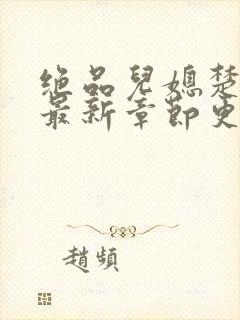 绝品儿媳楚
最新章節更
趙頻